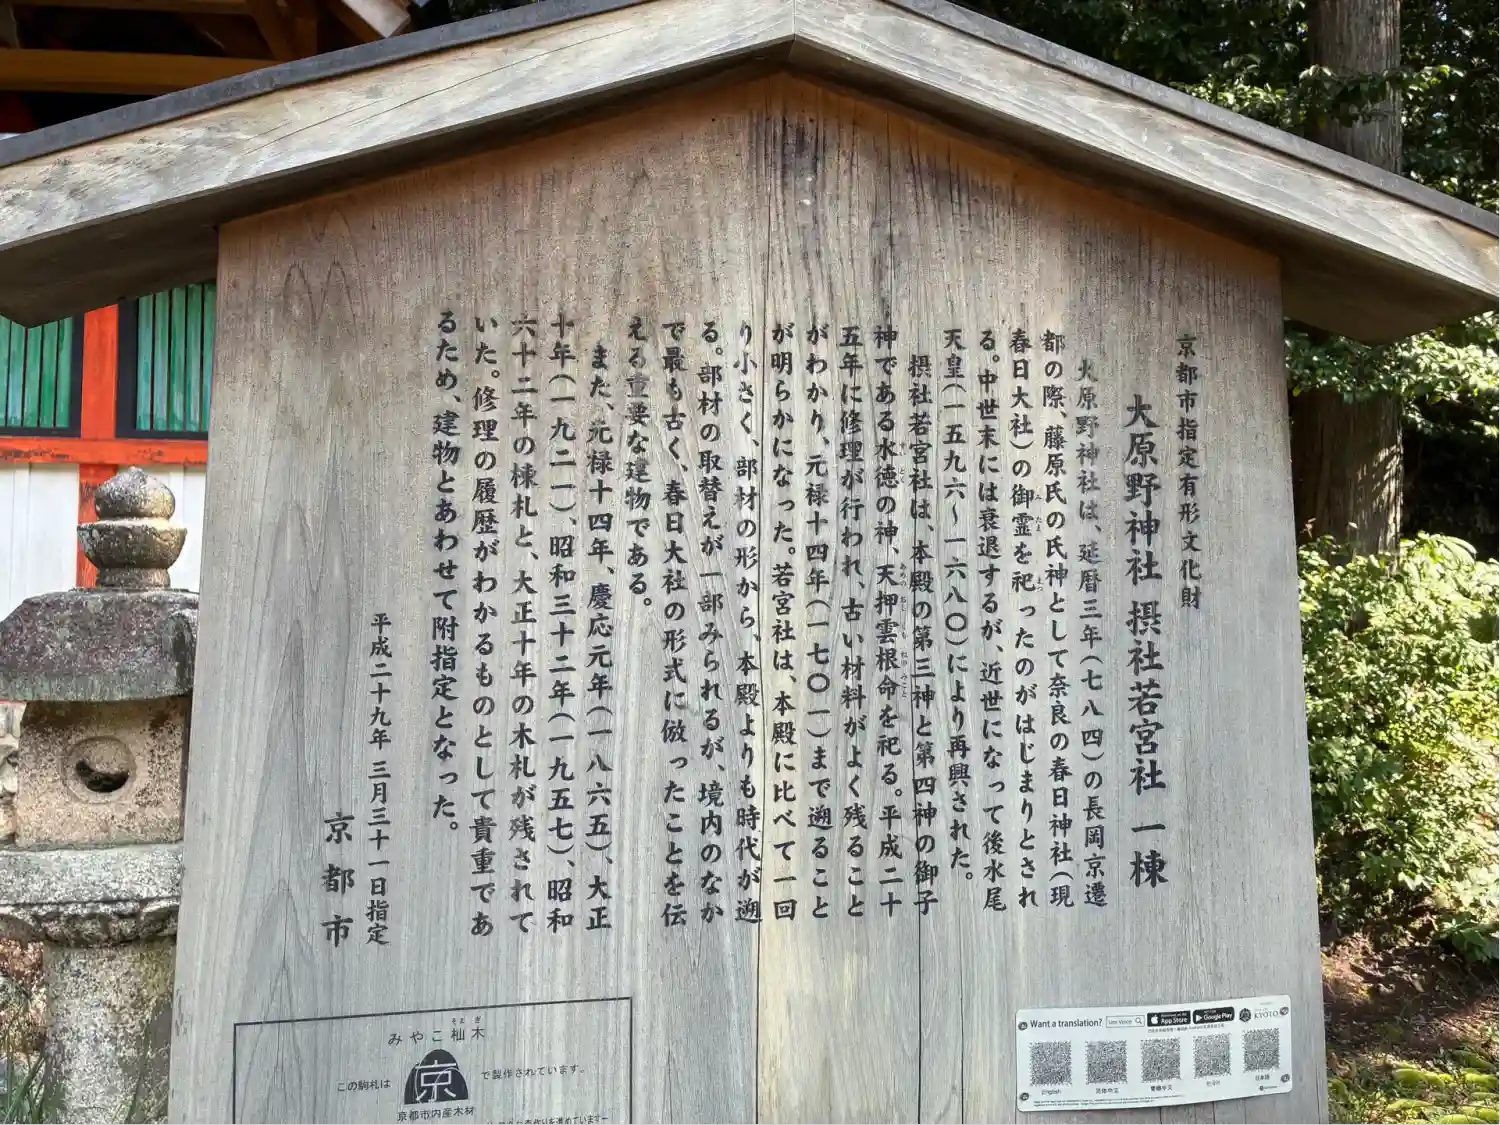 京都市指定有形文化財
大原野神社 摂社若宮社 一棟
大原野神社は、延暦三年(七八四)の長岡京遷
都の際、藤原氏の氏神として奈良の春日神社(現
春日大社)の御霊を祀ったのがはじまりとされ
る。中世末には衰退するが、近世になって後水尾
天皇(一五九六〜一六八〇)により再興された。
摂社若宮社は、本殿の第三神と第四神の御子
神である水徳の神、天押雲根命を祀る。平成二十
五年に修理が行われ、古い材料がよく残ること
がわかり、元禄十四年(一七〇一)まで遡ること
が明らかになった。若宮社は、本殿に比べて一回
り小さく、部材の形から、本殿よりも時代が遡
る。部材の取替えが一部みられるが、境内のなか
で最も古く、春日大社の形式に倣ったことを伝
える重要な建物である。
また、元禄十四年、慶応元年(一八六五)、大正
十年(一九二一)、昭和三十二年(一九五七)、昭和
六十二年の棟札と、大正十年の木札が残されて
いた。修理の履歴がわかるものとして貴重であ
るため、建物とあわせて附指定となった。
平成二十九年 三月三十一日指定
京都市
みやこ杣木
そまぎ
この駒札は
京
で製作されています。
京都市内産木材
Want a translation?
App Store
Google Play
KYOTO
English
简体中文
繁體中文
한국어
日本語